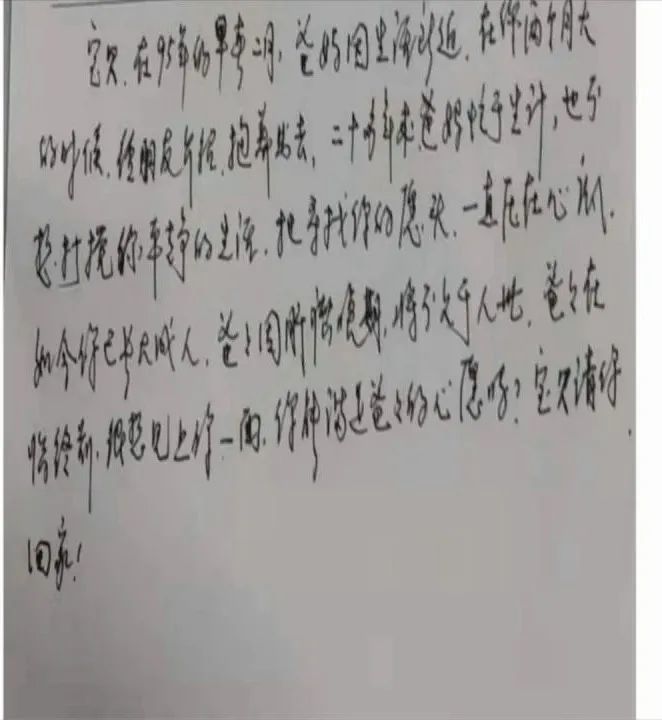 宝贝,在95年的早春二月,爸妈因生活所迫,在你两个月大
的时候,经朋友介绍,抱养出去,二十多年来爸妈忙于生计,也不
想打搅你平静的生活,把寻找你的愿求,一直压在心底,
如今你已长大成人,爸爸因肺癌晚期,将不久于人世,爸爸在
临终前,很想见上你一面,你能满足爸爸的心愿吗?宝贝请你
回家!